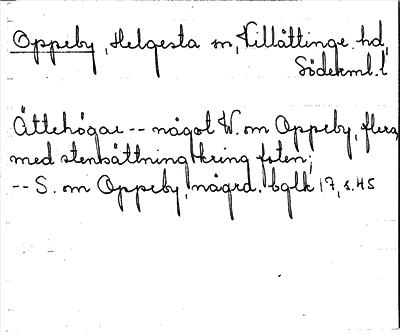 Oppeby, Helgesta sn, Villåttinge hd,
Söderml. l
Ättehögar -- något W. om Oppeby, flera,
med stensättning kring foten;
-- S. om Oppeby, någrd. bglk 17, s. 45